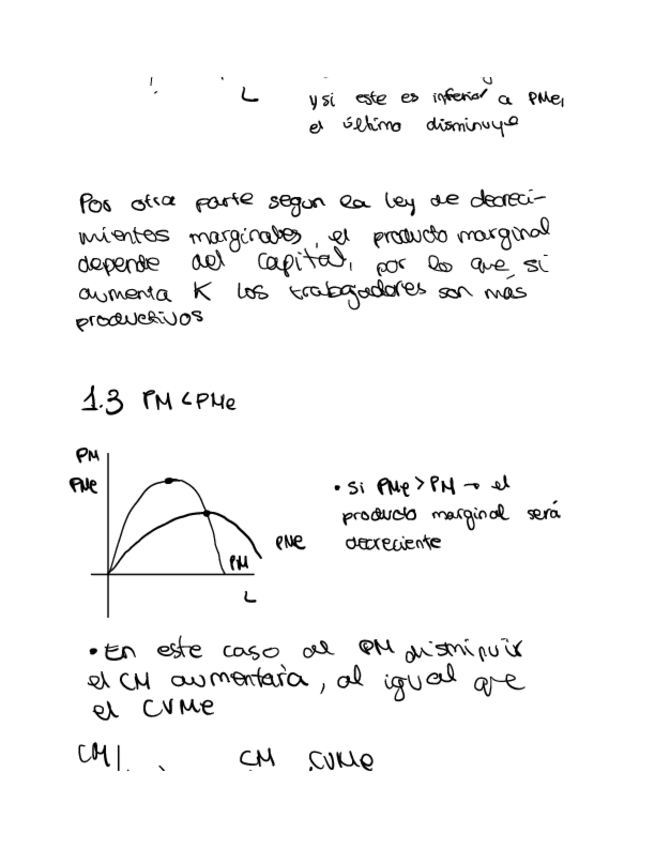 L
y si este es inferior a PMe,
el último disminuye
Por otra parte segun la ley de decreci-
mientos marginales, el producto marginal
depende del capital, por lo que si
aumenta K los trabajadores son más
productivos
1.3 PM < PMe
PM
PMe
• Si PMe > PM → el
producto marginal será
decreciente
PMe
PM
L
• En este caso al PM disminuir
el CM aumentaría, al igual que
el CVMe
CM
CM CVMe